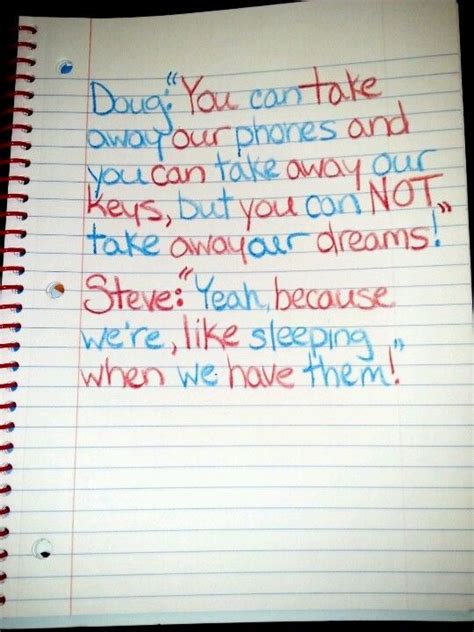 Doug: "You can take
away our phones and
you can take away our
keys, but you can NOT
take away our dreams!"
Steve: "Yeah, because
we're, like sleeping
when we have them!"